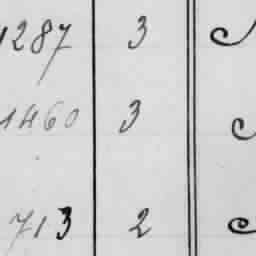 1287 3
1460 3
713 2